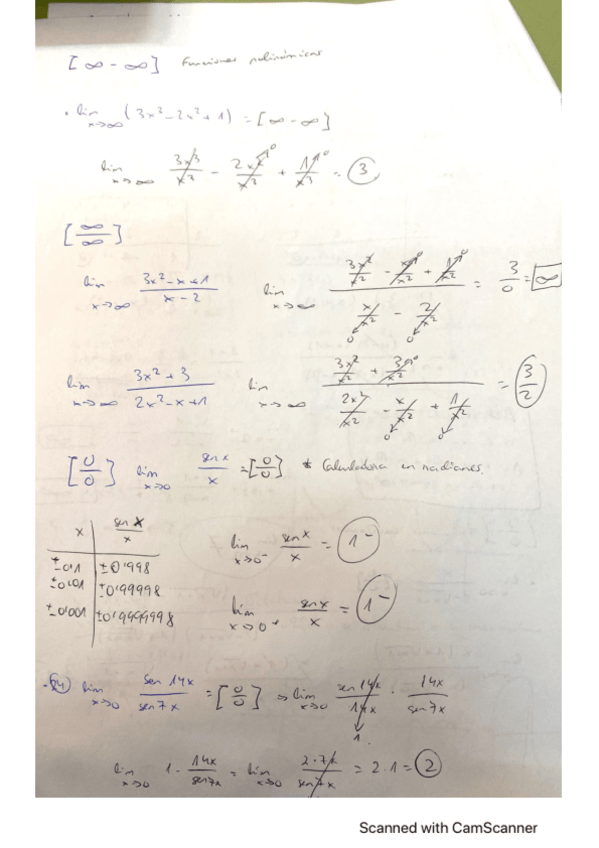 [∞ - ∞] Funciones polinómicas
· lim x→∞ (3x³ - 2x² + 1) = [∞ - ∞]
lim x→∞ 3x³/x³ - 2x²/x³ + 1/x³ = 3
[∞/∞]
lim x→∞ (3x² - x + 1)/(x - 2) lim x→∞ (3x²/x² - x/x² + 1/x²)/(x/x² - 2/x²) = 3/0 = ∞
lim x→∞ (3x² + 3)/(2x² - x + 1) lim x→∞ (3x²/x² + 3/x²)/(2x²/x² - x/x² + 1/x²) = 3/2
[0/0] lim x→0 sen x/x = [0/0] * Calculadora en radianes.
x | sen x/x
±0'1 | ±0'998
±0'01 | ±0'99998
±0'001 | ±0'9999998
lim x→0⁻ sen x/x = 1⁻
lim x→0⁺ sen x/x = 1⁻
lim x→0 sen 14x/sen 7x = [0/0] ⇒ lim x→0 sen 14x/14x · 14x/sen 7x
1
lim x→0 1 · 14x/sen 7x = lim x→0 2·7x/sen 7x = 2·1 = 2
Scanned with CamScanner